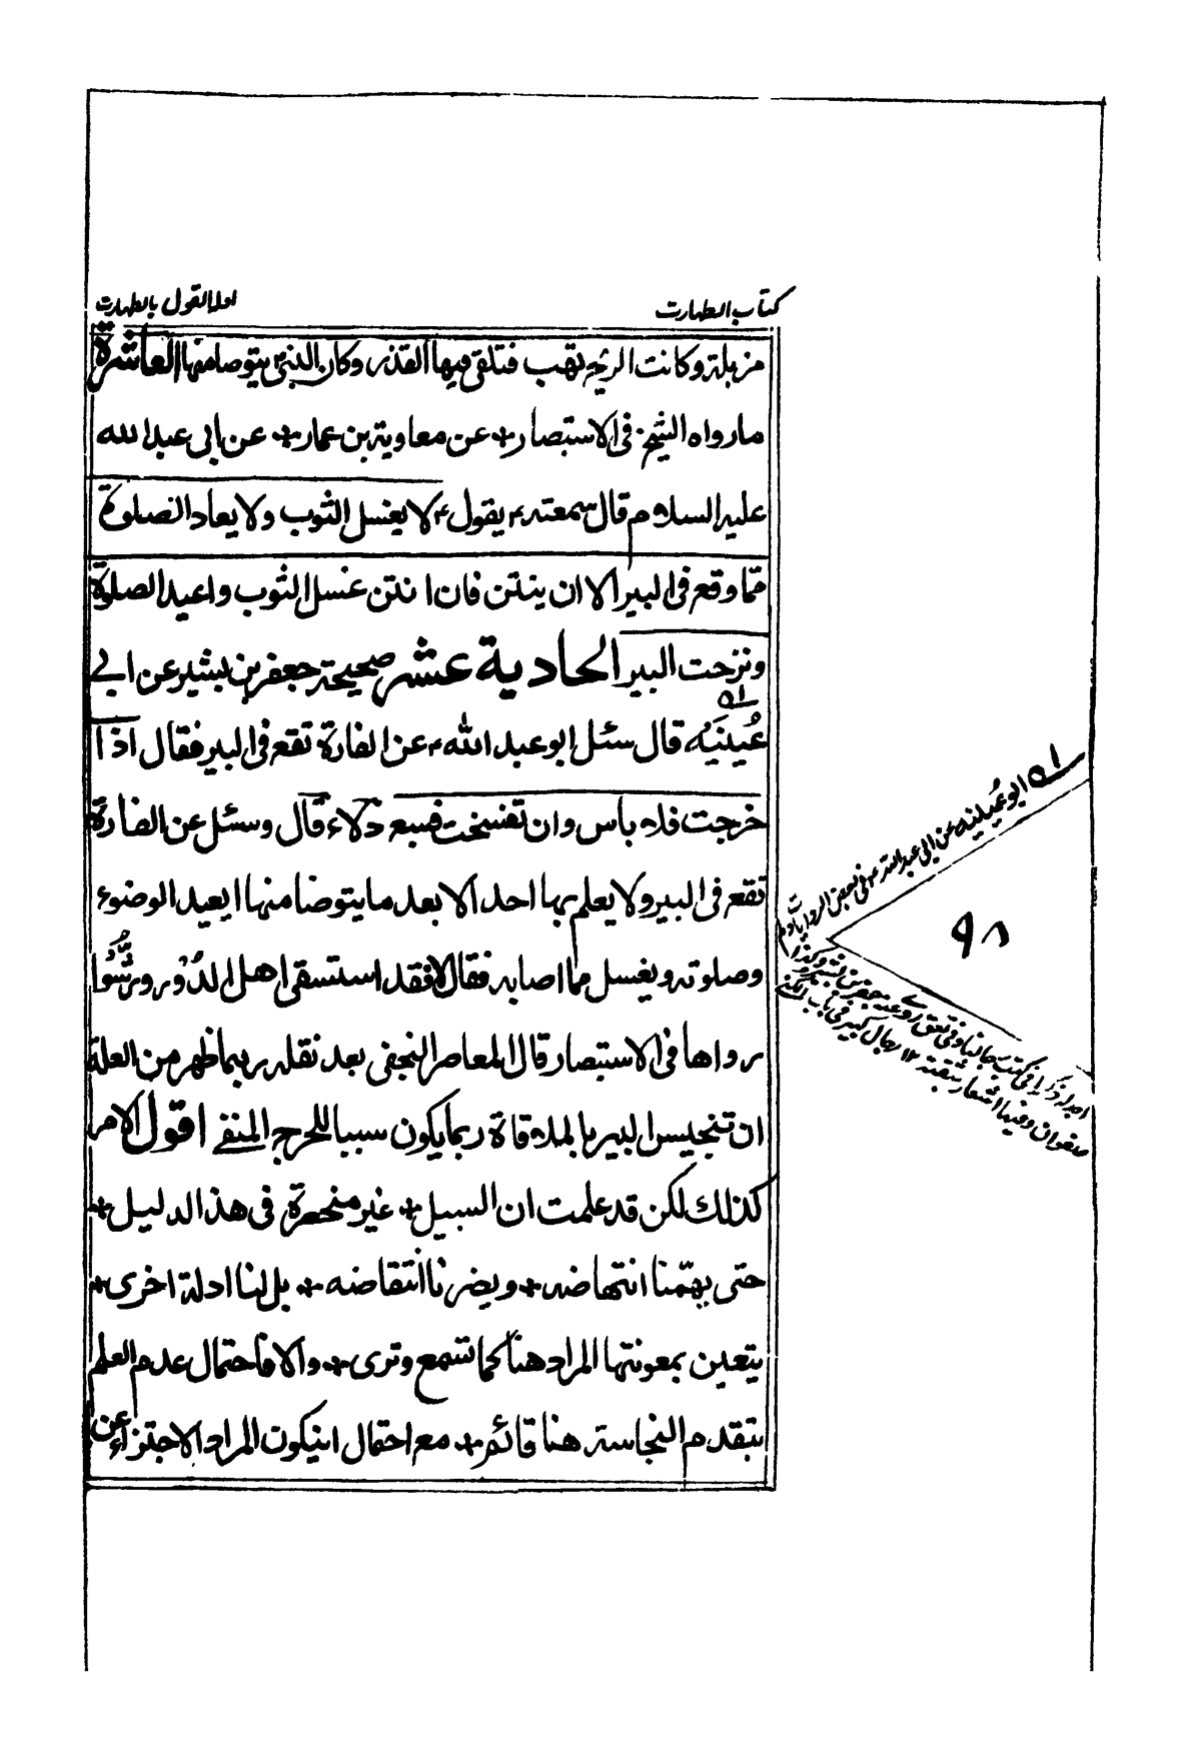 كتاب الطهارت
ادلة القول بالطهارت
مزبلة وكانت الريح تهب فتلقى فيها القذر وكان النبي ص يتوضا منها العاشرة
ما رواه الشيخ في الاستبصار عن معاوية بن عمار عن ابي عبد الله
عليه السلام قال سمعته يقول لا يغسل الثوب ولا يعاد الصلوة
مما وقع في البير الا ان ينتن فان انتن غسل الثوب واعيد الصلوة
ونزحت البير الحادية عشر صحيحة جعفر بن بشير عن ابي
عُيينَه قال سئل ابو عبد الله ع عن الفارة تقع في البير فقال اذا
خرجت فلا باس وان تفسخت فسبع دلاء قال وسئل عن الفارة
تقع في البير ولا يعلم بها احد الا بعد ما يتوضا منها ايعيد الوضوء
وصلوته ويغسل ما اصابه فقال لا فقد استسقى اهل الدُور ورشُّوا
رواها في الاستبصار قال المعاصر النجفي بعد نقله ربما ظهر من العلة
ان تنجيس البير بالملاقاة ربما يكون سببا للحرج المنفي اقول الامر
كذلك لكن قد علمت ان السبيل غير منحصرة في هذا الدليل
حتى يهمّنا انتهاضه ويضرنا انتقاضه بل لنا ادلة اخرى
يتعين بمعونتها المراد هنا كما تسمع وترى والا فاحتمال عدم العلم
بتقدم النجاسة هنا قائم مع احتمال ان يكون المراد الاجتزاء عن
ابو عيينه عن ابي عبد الله ع في بعض الروايات
رجال كبير في باب الكنى
٩٨